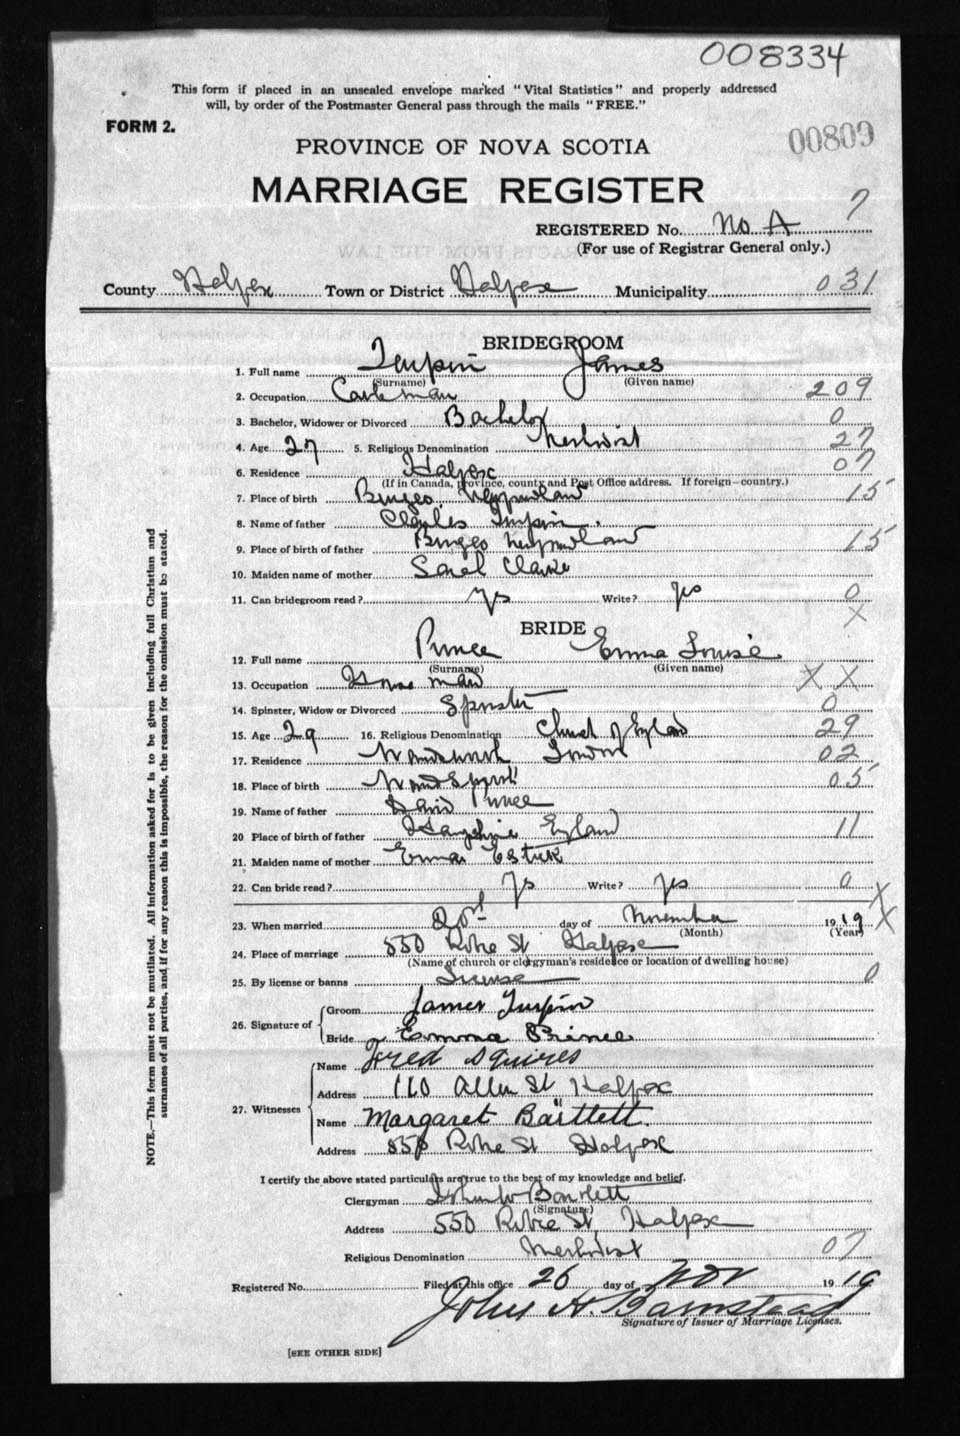 008334
This form if placed in an unsealed envelope marked "Vital Statistics" and properly addressed
will, by order of the Postmaster General pass through the mails "FREE."
FORM 2.
00809
PROVINCE OF NOVA SCOTIA
MARRIAGE REGISTER
7
REGISTERED No. No A
(For use of Registrar General only.)
County Halifax Town or District Halifax Municipality 031
BRIDEGROOM
1. Full name Turpin James
(Surname) (Given name)
2. Occupation 209
3. Bachelor, Widower or Divorced Bachelor 0
4. Age 27 5. Religious Denomination Methodist 27
6. Residence Halifax 07
(If in Canada, province, county and Post Office address. If foreign—country.)
7. Place of birth Newfoundland 15
8. Name of father Charles Turpin
9. Place of birth of father Newfoundland 15
10. Maiden name of mother Sarah Clarke
11. Can bridegroom read? Yes Write? Yes 0
X
BRIDE
12. Full name Prince Emma Louise
(Surname) (Given name)
13. Occupation X X
14. Spinster, Widow or Divorced Spinster 0
15. Age 29 16. Religious Denomination Church of England 29
17. Residence London 02
18. Place of birth 05
19. Name of father David Prince
20 Place of birth of father England 11
21. Maiden name of mother Emma
22. Can bride read? Yes Write? Yes 0
X
23. When married day of November 1919 X
(Month) (Year)
24. Place of marriage 550 Robie St Halifax
(Name of church or clergyman's residence or location of dwelling house)
25. By license or banns License 0
26. Signature of Groom James Turpin
Bride Emma Prince
27. Witnesses Name Fred Squires
Address 110 Allen St Halifax
Name Margaret Bartlett.
Address 550 Robie St Halifax
I certify the above stated particulars are true to the best of my knowledge and belief.
Clergyman John W Bartlett
(Signature)
Address 550 Robie St, Halifax
Religious Denomination Methodist 07
Registered No. Filed at this office 26 day of Nov 1919
John H. Barnstead
Signature of Issuer of Marriage Licenses.
[SEE OTHER SIDE]
NOTE.—This form must not be mutilated. All information asked for is to be given including full Christian and
surnames of all parties, and if for any reason this is impossible, the reason for the omission must be stated.